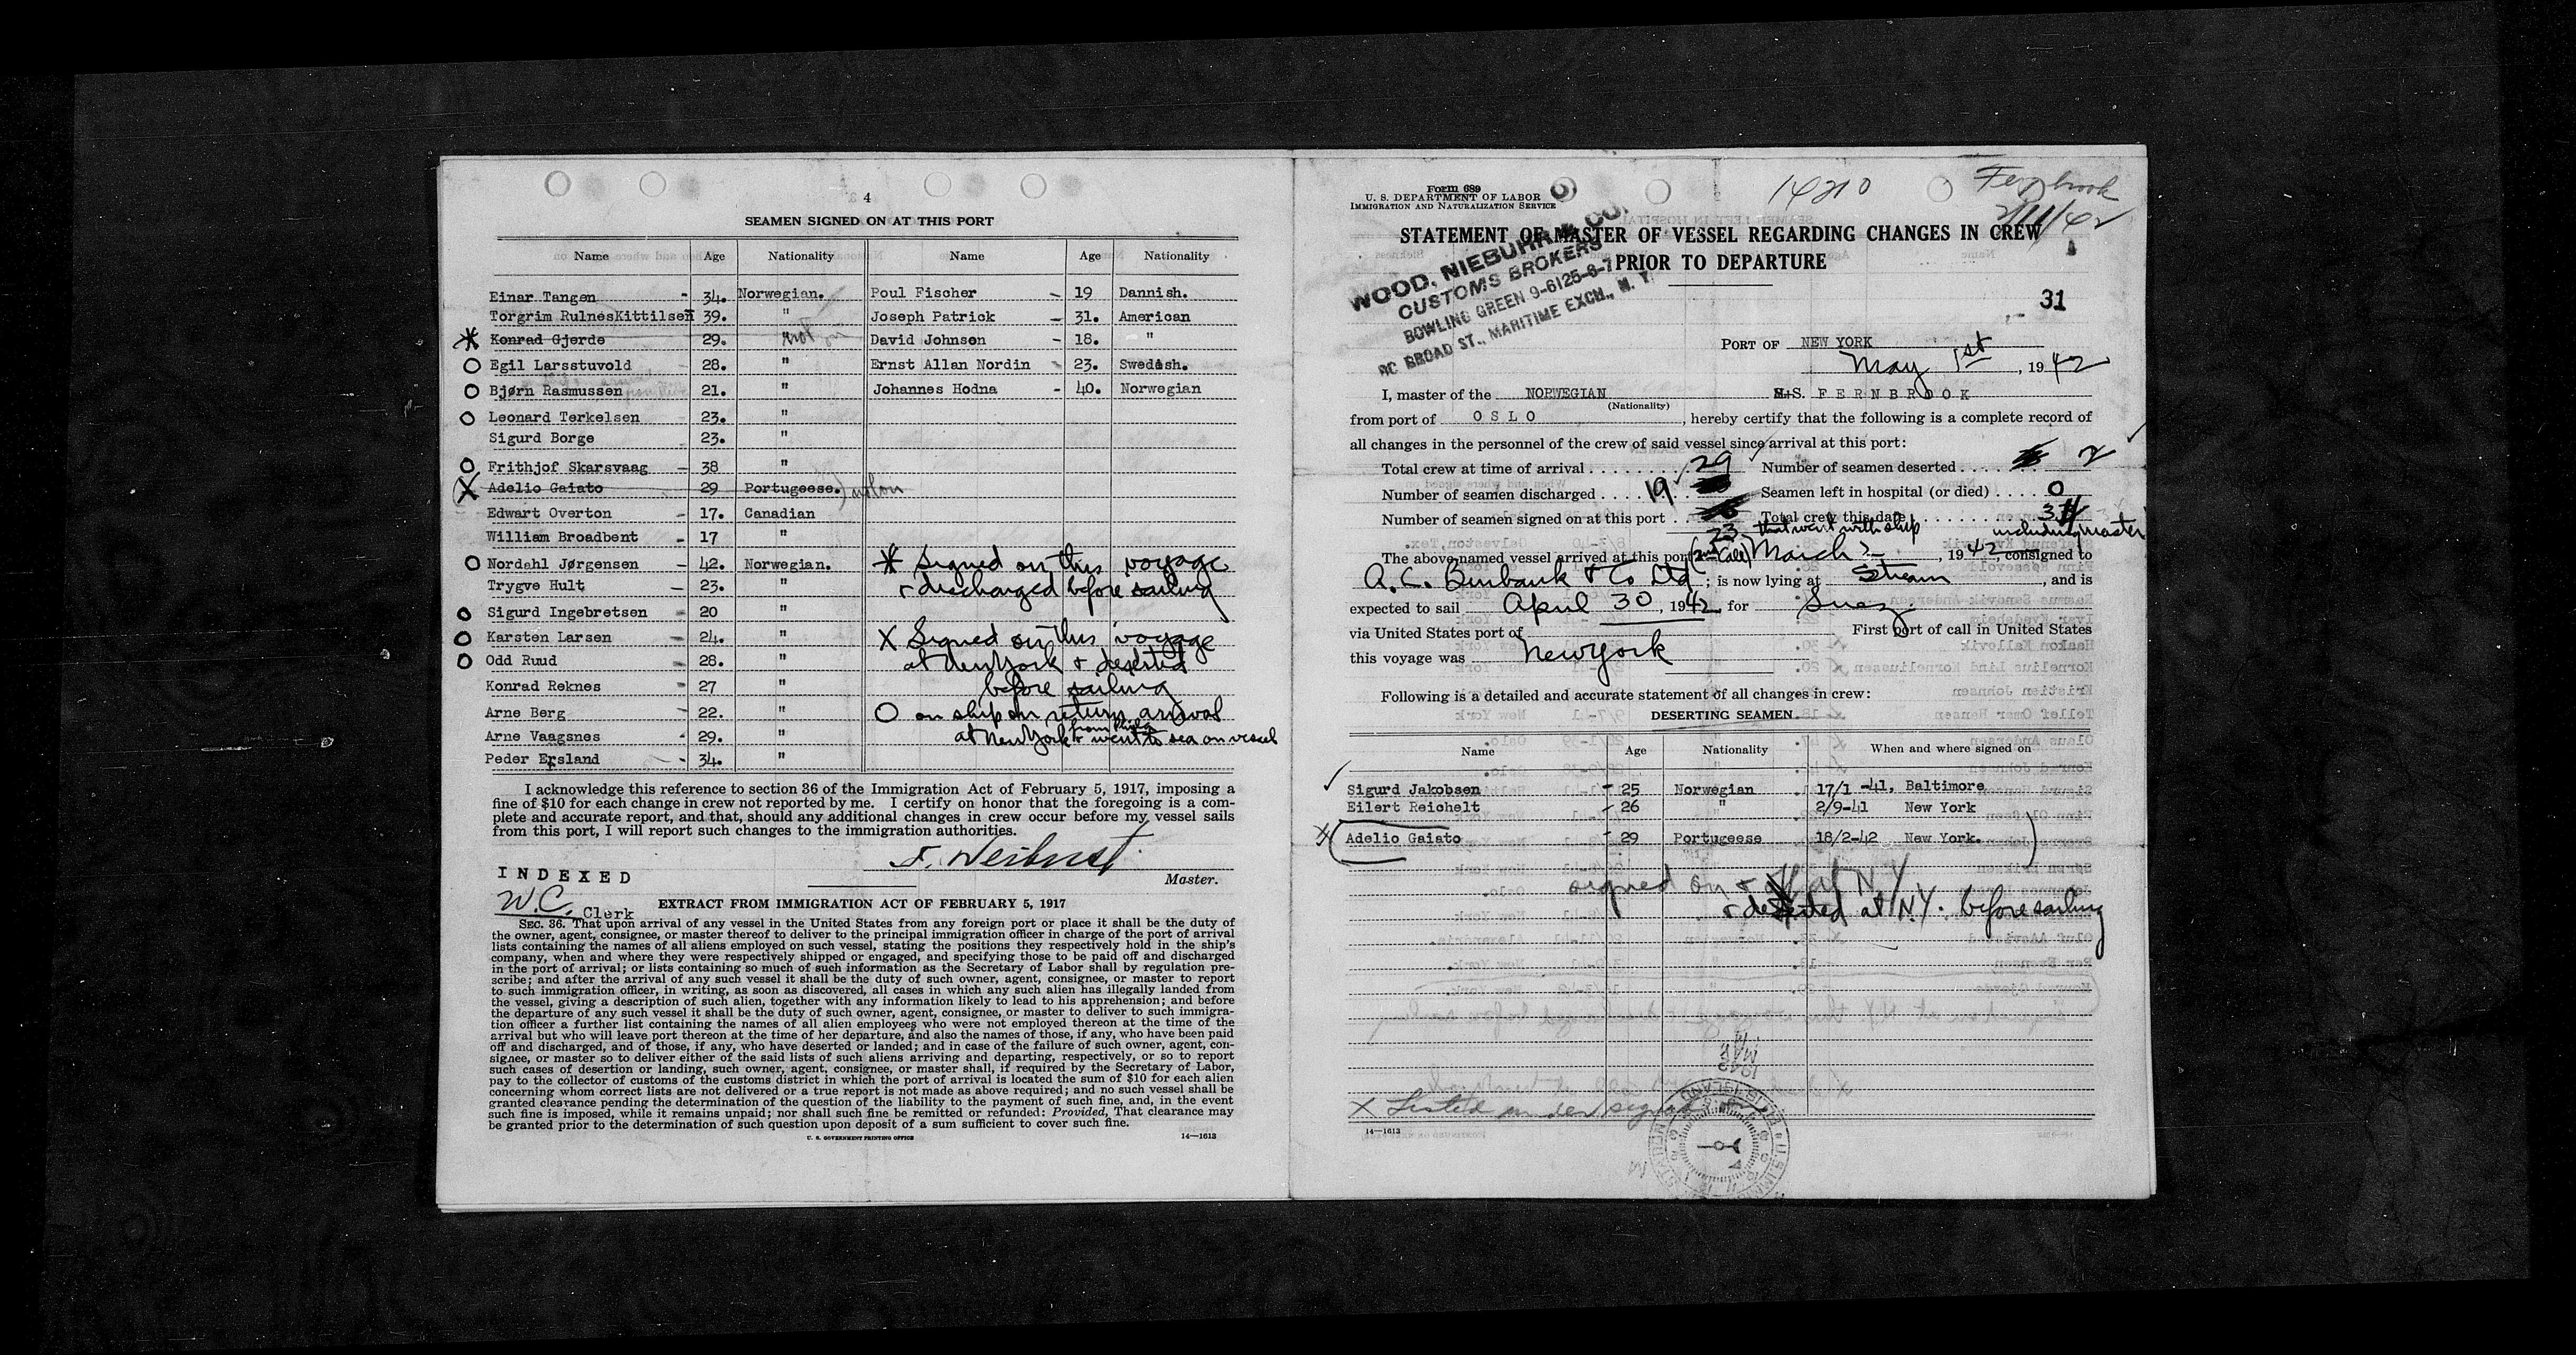 4
SEAMEN SIGNED ON AT THIS PORT
Name Age Nationality Name Age Nationality
Einar Tangen - 34. Norwegian. Poul Fischer - 19 Dannish.
Torgrim RulnesKittilsen 39. " Joseph Patrick - 31. American
Konrad Gjerde 29. " not David Johnson - 18. "
O Egil Larsstuvold 28. " Ernst Allan Nordin - 23. Swedish.
O Bjørn Rasmussen 21. " Johannes Hodna - 40. Norwegian
O Leonard Terkelsen 23. "
Sigurd Borge 23. "
O Frithjof Skarsvaag - 38 "
X Adelio Gaiato 29 Portugeese.
Edwart Overton - 17. Canadian
William Broadbent - 17 "
O Nordahl Jørgensen - 42. Norwegian. * Signed on this voyage
Trygve Hult - 23. " + discharged before sailing
O Sigurd Ingebretsen - 20 "
O Karsten Larsen - 24. " X Signed on this voyage
O Odd Ruud - 28. " at New York + deserted
Konrad Reknes - 27 " before sailing
Arne Berg - 22. " O on ship on return arrival
Arne Vaagsnes - 29. " at New York + went to sea on vessel
Peder Ersland - 34. "
I acknowledge this reference to section 36 of the Immigration Act of February 5, 1917, imposing a
fine of $10 for each change in crew not reported by me. I certify on honor that the foregoing is a com-
plete and accurate report, and that, should any additional changes in crew occur before my vessel sails
from this port, I will report such changes to the immigration authorities.
Master.
INDEXED
W.C. Clerk
EXTRACT FROM IMMIGRATION ACT OF FEBRUARY 5, 1917
SEC. 36. That upon arrival of any vessel in the United States from any foreign port or place it shall be the duty of
the owner, agent, consignee, or master thereof to deliver to the principal immigration officer in charge of the port of arrival
lists containing the names of all aliens employed on such vessel, stating the positions they respectively hold in the ship's
company, when and where they were respectively shipped or engaged, and specifying those to be paid off and discharged
in the port of arrival; or lists containing so much of such information as the Secretary of Labor shall by regulation pre-
scribe; and after the arrival of any such vessel it shall be the duty of such owner, agent, consignee, or master to report
to such immigration officer, in writing, as soon as discovered, all cases in which any such alien has illegally landed from
the vessel, giving a description of such alien, together with any information likely to lead to his apprehension; and before
the departure of any such vessel it shall be the duty of such owner, agent, consignee, or master to deliver to such immigra-
tion officer a further list containing the names of all alien employees who were not employed thereon at the time of the
arrival but who will leave port thereon at the time of her departure, and also the names of those, if any, who have been paid
off and discharged, and of those, if any, who have deserted or landed; and in case of the failure of such owner, agent, con-
signee, or master so to deliver either of the said lists of such aliens arriving and departing, respectively, or so to report
such cases of desertion or landing, such owner, agent, consignee, or master shall, if required by the Secretary of Labor,
pay to the collector of customs of the customs district in which the port of arrival is located the sum of $10 for each alien
concerning whom correct lists are not delivered or a true report is not made as above required; and no such vessel shall be
granted clearance pending the determination of the question of the liability to the payment of such fine, and, in the event
such fine is imposed, while it remains unpaid; nor shall such fine be remitted or refunded: Provided, That clearance may
be granted prior to the determination of such question upon deposit of a sum sufficient to cover such fine.
U. S. GOVERNMENT PRINTING OFFICE 14—1613
Form 689
U. S. DEPARTMENT OF LABOR
IMMIGRATION AND NATURALIZATION SERVICE
14210
Fernbrook
STATEMENT OF MASTER OF VESSEL REGARDING CHANGES IN CREW
PRIOR TO DEPARTURE
WOOD, NIEBUHR & CO.
CUSTOMS BROKERS
BOWLING GREEN 9-6125-6-7
BROAD ST., MARITIME EXCH., N. Y.
31
PORT OF NEW YORK
May 1st, 1942
I, master of the NORWEGIAN M.S. FERNBROOK
(Nationality)
from port of OSLO, hereby certify that the following is a complete record of
all changes in the personnel of the crew of said vessel since arrival at this port:
Total crew at time of arrival 29 Number of seamen deserted 2
Number of seamen discharged 19 Seamen left in hospital (or died) 0
Number of seamen signed on at this port 23 Total crew this date
that went with ship including master
The above-named vessel arrived at this port (2nd Call) March, 1942, consigned to
A. C. Burbank & Co Ltd; is now lying at Stream, and is
expected to sail April 30, 1942 for Suez.
via United States port of First port of call in United States
this voyage was New York
Following is a detailed and accurate statement of all changes in crew:
DESERTING SEAMEN
Name Age Nationality When and where signed on
Sigurd Jakobsen - 25 Norwegian 17/1-41, Baltimore
Eilert Reichelt - 26 " 2/9-41 New York
X Adelio Gaiato - 29 Portugeese 18/2-42 New York.
signed on + off at N Y
+ deserted at N.Y. before sailing
X Listed under signed on
14—1613